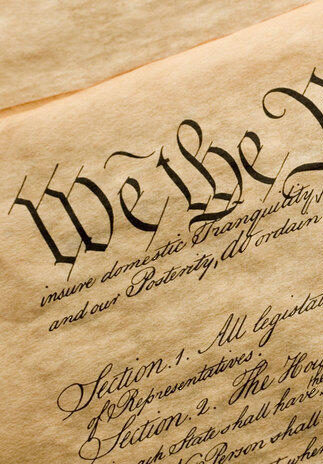 We the
insure domestic Tranquility,
and our Posterity, do ordain
Section. 1. All legisla
of Representatives.
Section. 2. The Hou
ach State shall have
No Person shall
when